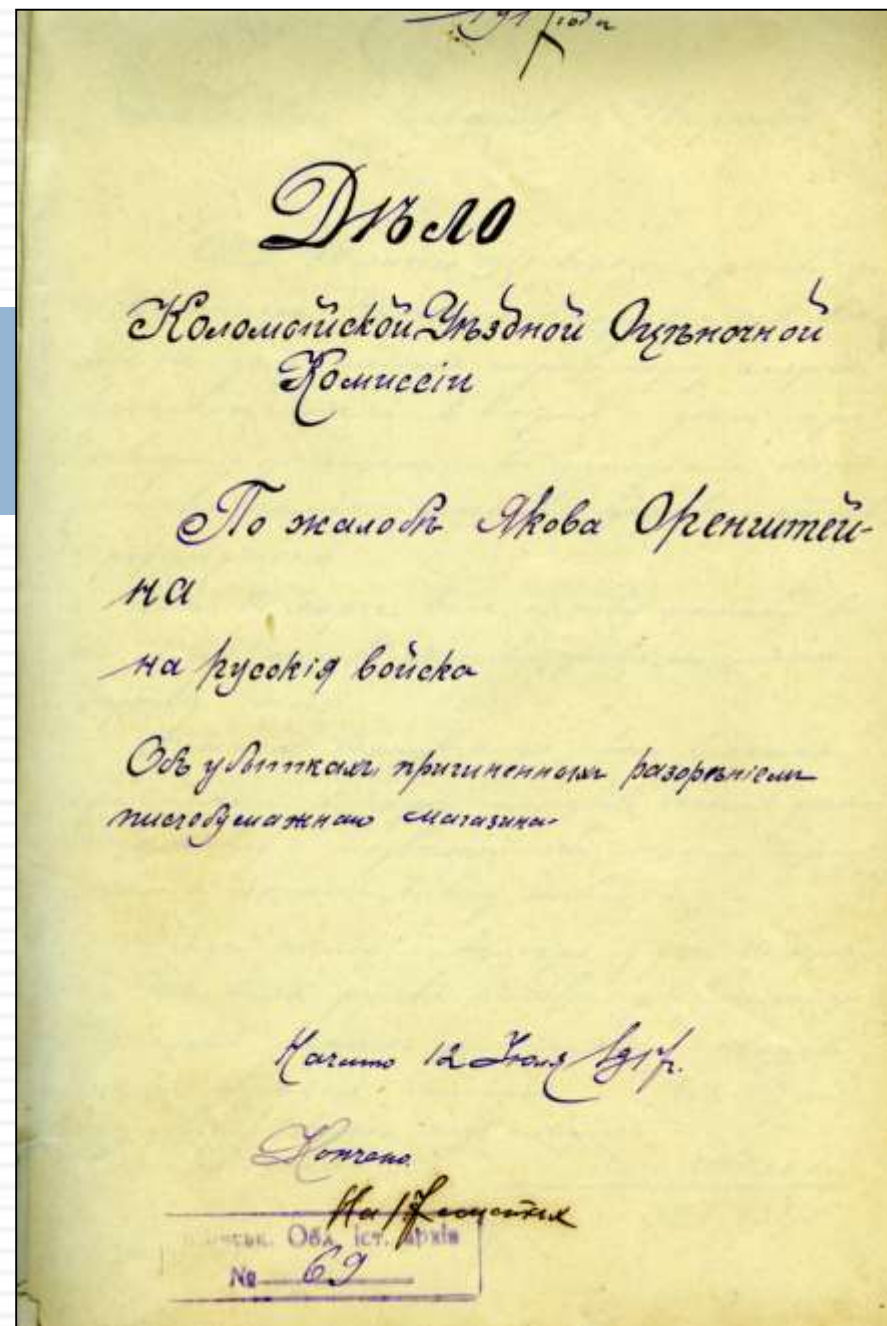 1917 года
Дѣло
Коломыйской Уѣздной Оцѣночной
Комиссіи
По жалобѣ Якова Оренштей-
на
на русскія войска
Объ убыткахъ, причиненныхъ разореніемъ
писчебумажнаго магазина
Начато 12 Іюля 1917 г.
Кончено
На листах
Обл. іст. архів
№ 69